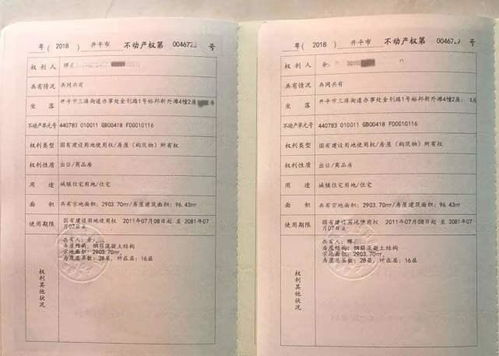 粤（2018）开平市不动产权第00467 号
权利人
共有情况 共同共有
坐落 开平市三埠街道办事处金利路1号裕邦新外滩4幢2层
不动产单元号 440783 010011 GB00418 F00010116
权利类型 国有建设用地使用权/房屋（构筑物）所有权
权利性质 出让/商品房
用途 城镇住宅用地/住宅
面积 共有宗地面积：2903.70㎡/房屋建筑面积：96.43㎡
使用期限 国有建设用地使用权 2011年07月08日起 至 2081年07
月07日止
权利其他状况
共有人：
房屋结构：钢筋混凝土结构
宗地面积：2903.70㎡
房屋总层数：28层，所在层：16层
粤（2018）开平市不动产权第00467 号
权利人
共有情况 共同共有
坐落 开平市三埠街道办事处金利路1号裕邦新外滩4幢2层
不动产单元号 440783 010011 GB00418 F00010116
权利类型 国有建设用地使用权/房屋（构筑物）所有权
权利性质 出让/商品房
用途 城镇住宅用地/住宅
面积 共有宗地面积：2903.70㎡/房屋建筑面积：96.43㎡
使用期限 国有建设用地使用权 2011年07月08日起 至 2081年07
月07日止
权利其他状况
共有人：
房屋结构：钢筋混凝土结构
宗地面积：2903.70㎡
房屋总层数：28层，所在层：16层